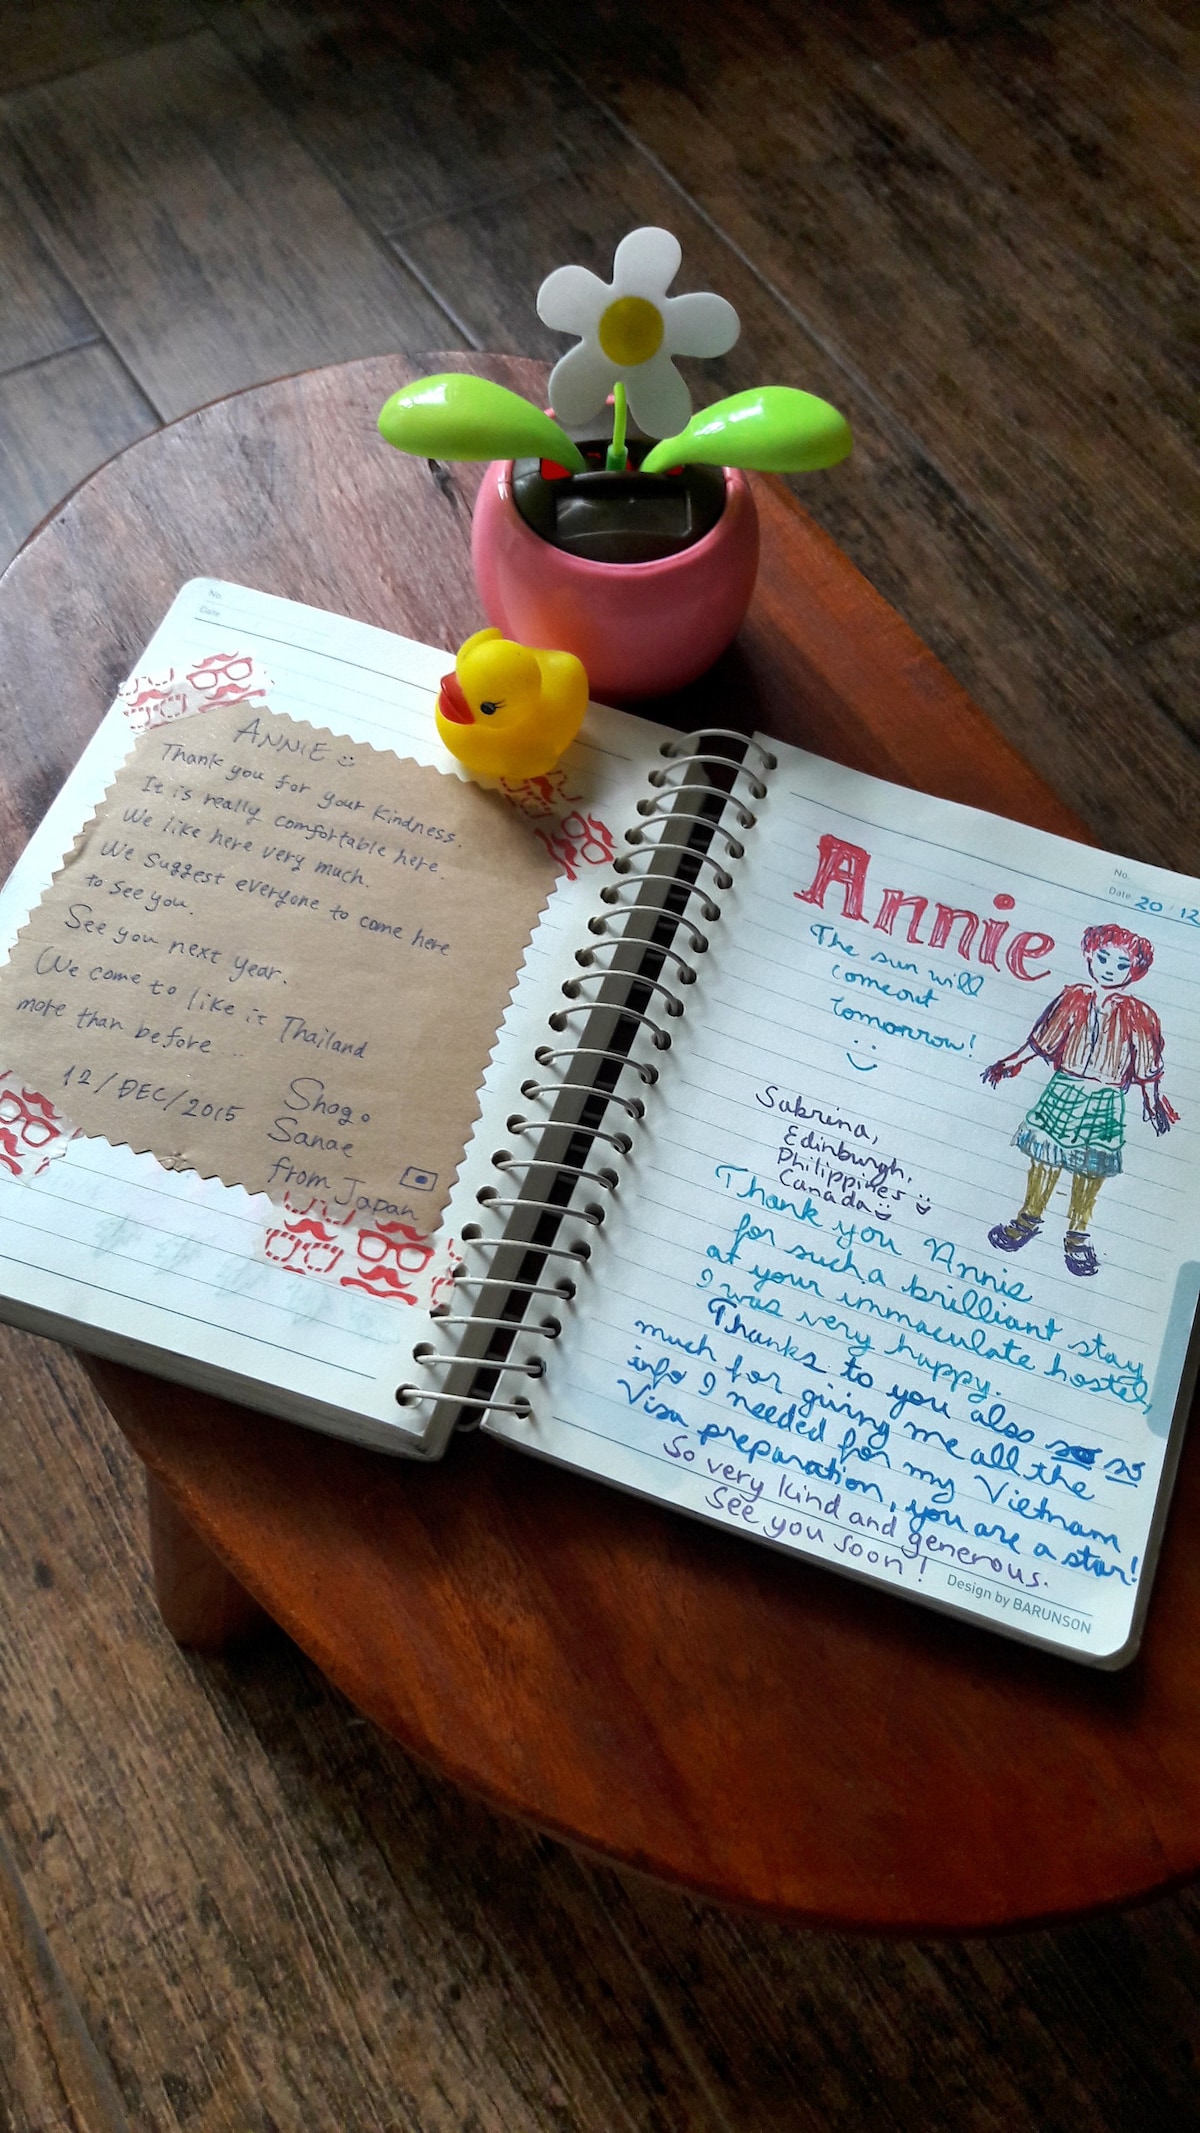 No
Date
ANNIE
Thank you for your Kindness.
It is really comfortable here.
We like here very much.
We Suggest everyone to come here
to see you.
See you next year.
We come to like it Thailand
more than before ..
12/DEC/2015
Shogo
Sanae
from Japan
No.
Date 20 / 12
Annie
The sun will
come out
tomorrow!
Sabrina,
Edinburgh,
Philippines
Canada
Thank you Annie
for such a brilliant stay
at your immaculate hostel,
I was very happy.
Thanks to you also so so
much for giving me all the
info I needed for my Vietnam
Visa preparation, you are a star!
So very kind and generous.
See you soon!
Design by BARUNSON